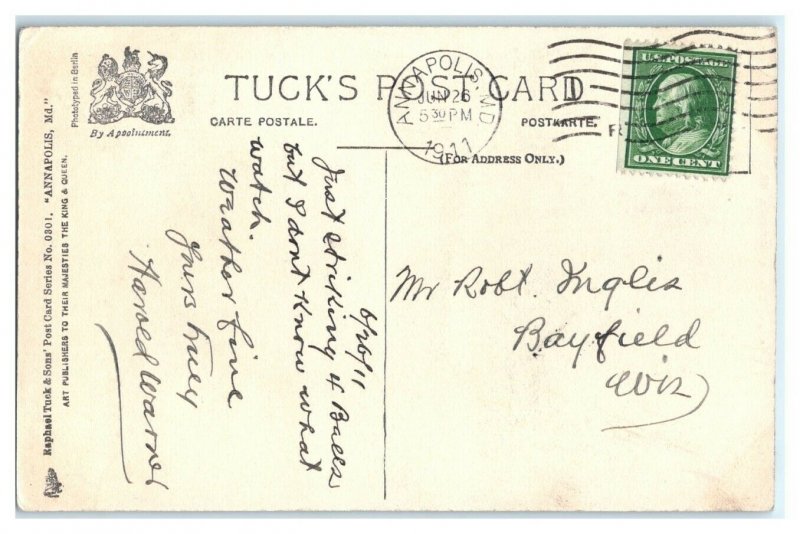 TUCK'S POST CARD
CARTE POSTALE.
POSTKARTE.
(FOR ADDRESS ONLY.)
ANNAPOLIS, MD.
JUN 26
5 30 PM
1911
U.S. POSTAGE
ONE CENT
Phototyped in Berlin
By Appointment.
Raphael Tuck & Sons' Post Card Series No. 0301, "ANNAPOLIS, Md."
ART PUBLISHERS TO THEIR MAJESTIES THE KING & QUEEN.
6/26/11
Just striking 4 Bells
but I dont know what
watch.
Weather fine
Yours truly
Harold Warner
Mr Robt. Inglis
Bayfield
Wis